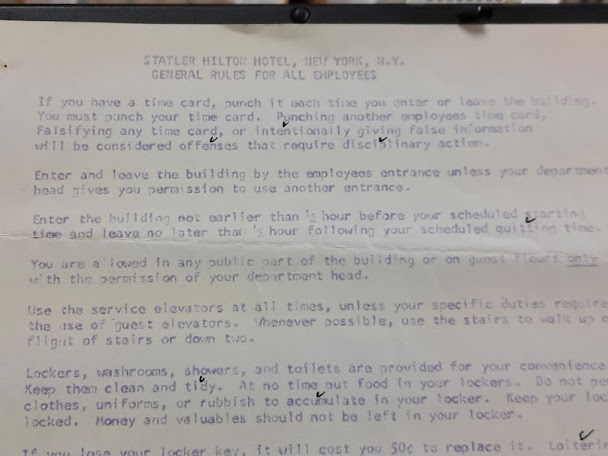 STATLER HILTON HOTEL, NEW YORK, N.Y.
GENERAL RULES FOR ALL EMPLOYEES
If you have a time card, punch it each time you enter or leave the building.
You must punch your time card. Punching another employees time card,
Falsifying any time card, or intentionally giving false information
will be considered offenses that require disciplinary action.
Enter and leave the building by the employees entrance unless your department
head gives you permission to use another entrance.
Enter the building not earlier than ½ hour before your scheduled starting
time and leave no later than ½ hour following your scheduled quitting time.
You are allowed in any public part of the building or on guest floors only
with the permission of your department head.
Use the service elevators at all times, unless your specific duties require
the use of guest elevators. Whenever possible, use the stairs to walk up
flight of stairs or down two.
Lockers, washrooms, showers, and toilets are provided for your convenience.
Keep them clean and tidy. At no time put food in your lockers. Do not
clothes, uniforms, or rubbish to accumulate in your locker. Keep your
locked. Money and valuables should not be left in your locker.
If you lose your locker key, it will cost you 50¢ to replace it. Loitering